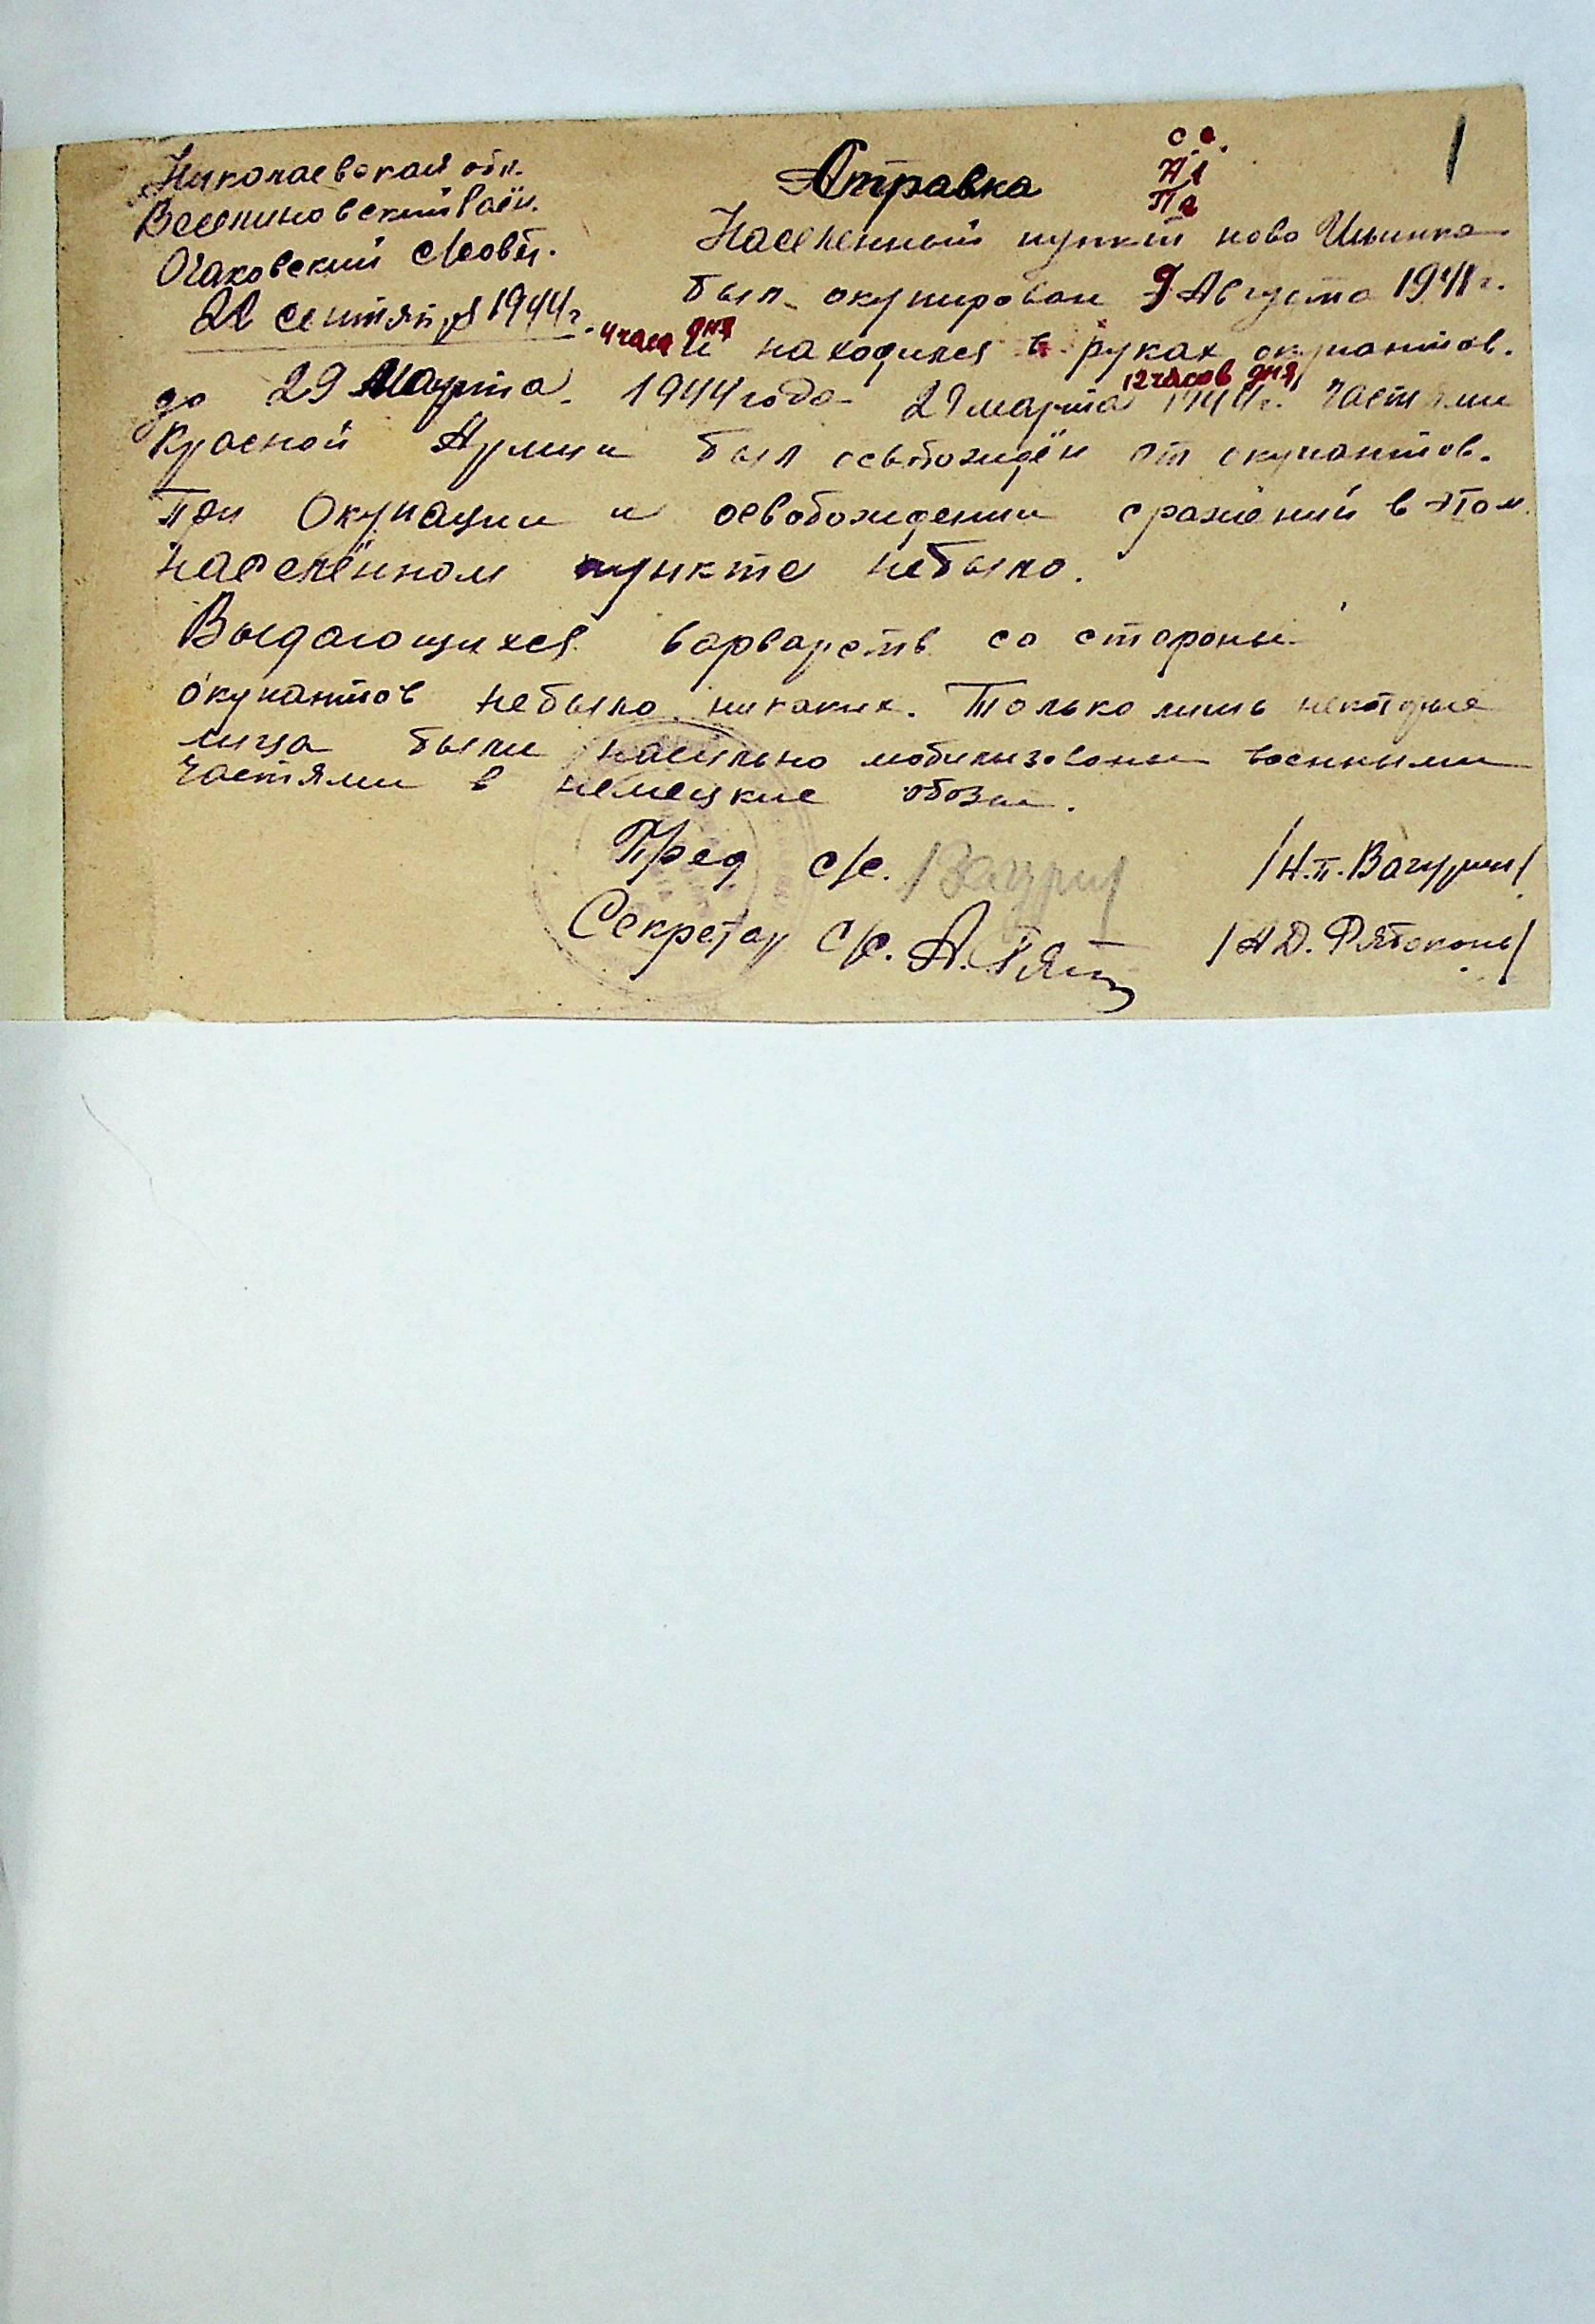 Николаевская обл.
Веселиновский раён.
Очаковский с/совет.
22 сентября 1944 г.
Справка
Населенный пункт ново
был окупирован 9 Августа 1941 г.
4 часа дня
и находился в руках окупантов.
до 29 Марта 1944 года 29 марта 1944 г. Частями
12 часов дня
Красной Армии был освобождён от окупантов.
При Окупации и освобождении сражений в этом
населённом пункте небыло.
Выдающихся варварств со стороны
окупантов небыло никаких. Только лишь некоторые
лица были насильно мобилизованы военными
частями в немецкие обозы.
Пред с/с. /Н.П. Вагурин/
Секретар С/с. /А Д. Рябоконь/